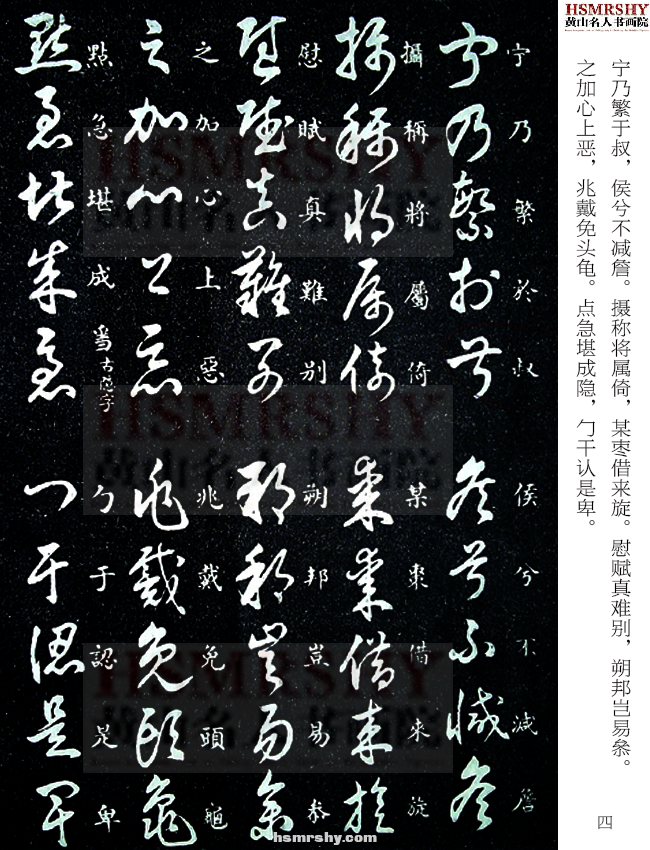 HSMRSHY
黄山名人书画院
宁乃繁于叔，侯兮不减詹。摄称将属倚，某枣借来旋。慰赋真难别，朔邦岂易叅。
之加心上恶，兆戴免头龟。点急堪成隐，勹干认是卑。
四
宁乃繁於叔侯兮不减詹
攝稱將屬倚某棗借來旋
慰賦真難别朔邦豈易叅
之加心上惡兆戴免頭龜
點急堪成
勹于認是卑
HSMRSHY
黄山名人书画院
HSMRSHY
黄山名人书画院
HSMRSHY
黄山名人书画院
hsmrshy.com